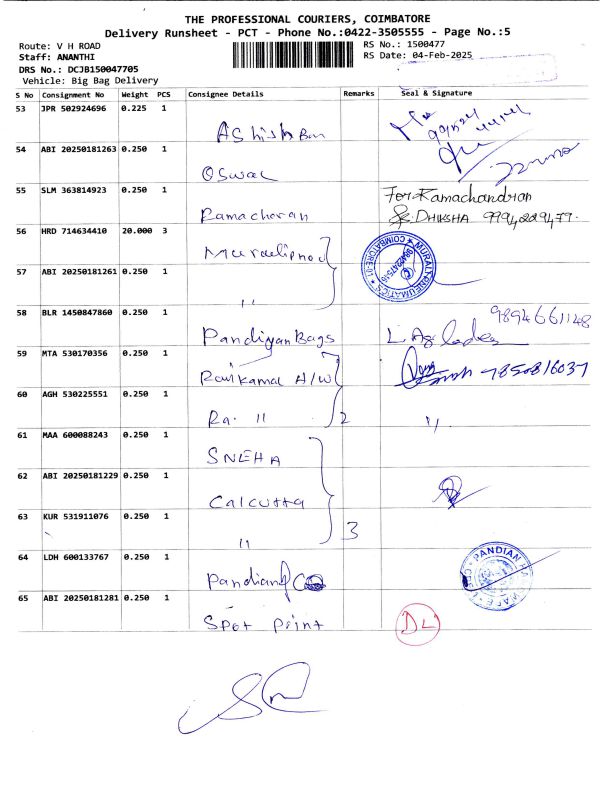 THE PROFESSIONAL COURIERS, COIMBATORE
Delivery Runsheet - PCT - Phone No.:0422-3505555 - Page No.:5
Route: V H ROAD RS No.: 1500477
Staff: ANANTHI RS Date: 04-Feb-2025
DRS No.: DCJB150047705
Vehicle: Big Bag Delivery
S No Consignment No Weight PCS Consignee Details Remarks Seal & Signature
53 JPR 502924696 0.225 1
Ashish Ban
54 ABI 20250181263 0.250 1
Oswal
55 SLM 363814923 0.250 1
For Ramachandran
Ramacharan DHIKSHA 9994229479.
56 HRD 714634410 20.000 3
MURALI PNEUMATICS COIMBATORE-01
57 ABI 20250181261 0.250 1
"
58 BLR 1450847860 0.250 1
9894661148
Pandiyan Bags
59 MTA 530170356 0.250 1
Ravikamal H/W 7850816037
60 AGH 530225551 0.250 1
Ra. " 2 "
61 MAA 600088243 0.250 1
SNEHA
62 ABI 20250181229 0.250 1
Calcutta
63 KUR 531911076 0.250 1
" 3
64 LDH 600133767 0.250 1
PANDIAN
Pandian
65 ABI 20250181281 0.250 1
Spot Print DL